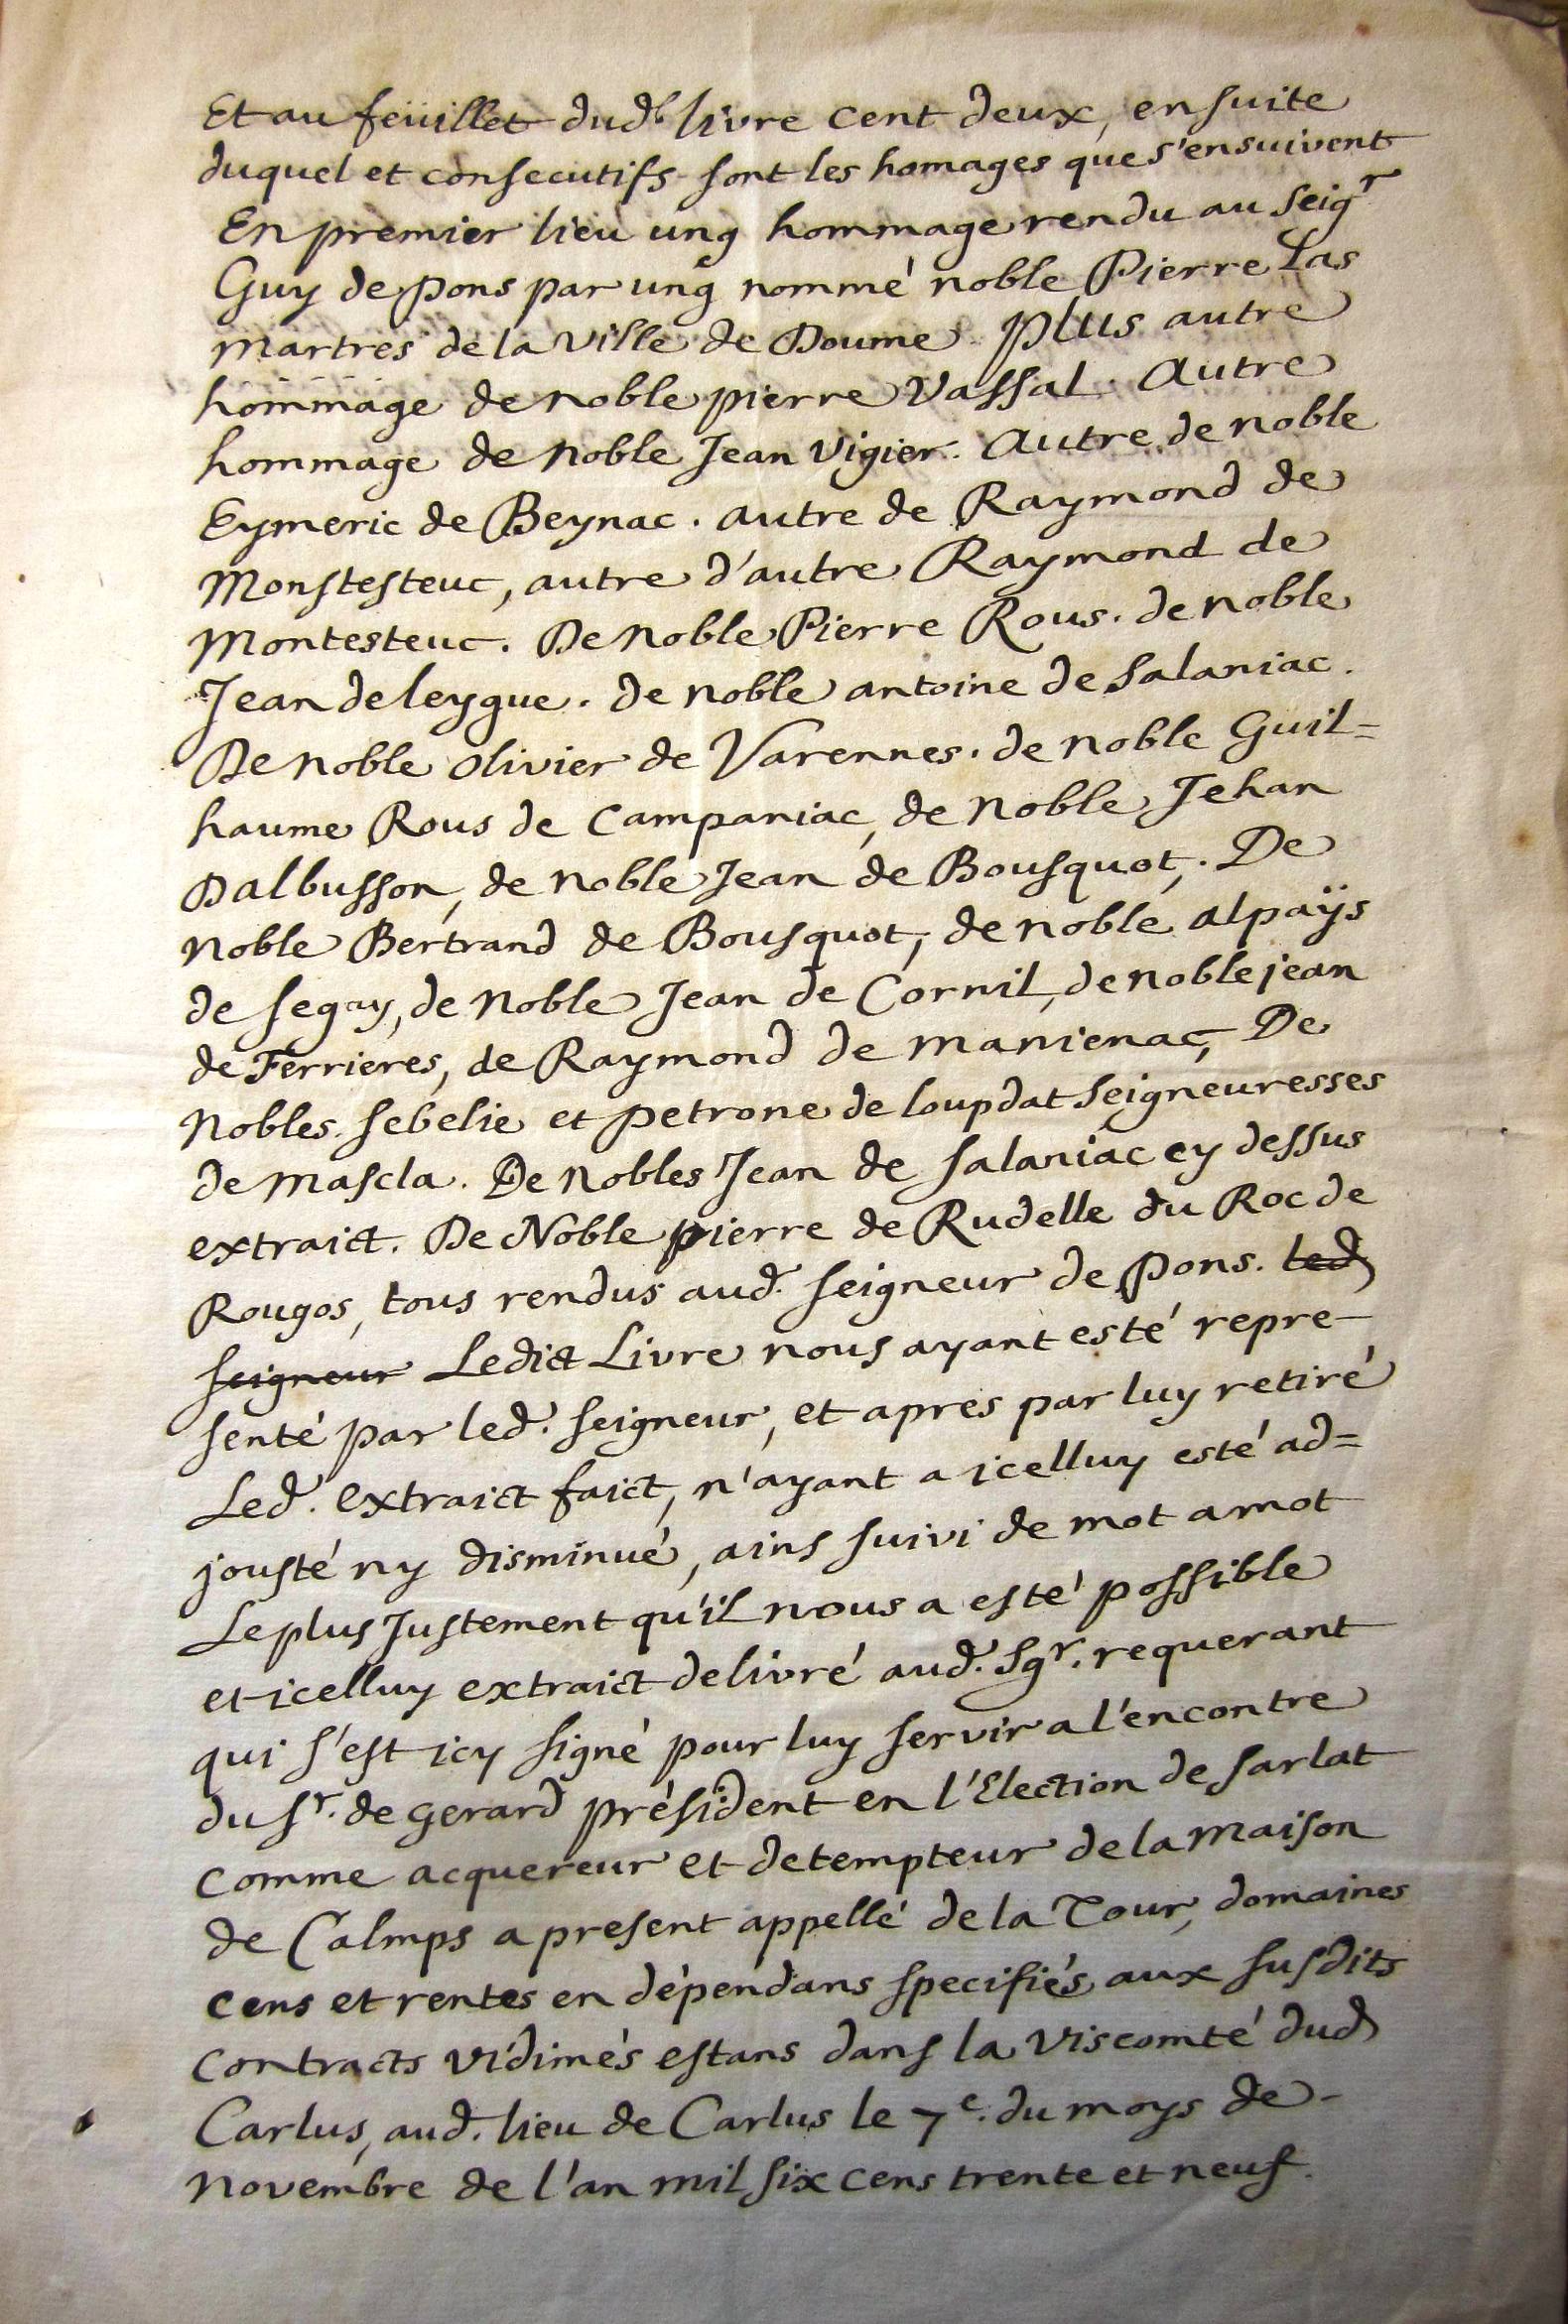 Et au feüillet dud.t livre cent deux, ensuite
duquel et consecutifs sont les homages que s'ensuivent
En premier lieu ung hommage rendu au Seigr
Guy de Pons par ung nommé noble Pierre Las
Martres de la Ville de Doume. Plus autre
hommage de noble pierre Vassal. Autre
hommage de Noble Jean Vigier. Autre de noble
Eymeric de Beynac. autre de Raymond de
Monstesteuc, autre d'autre Raymond de
Montesteuc. De Noble Pierre Rous. de noble
Jean de leygue. de noble antoine de Salaniac.
De noble olivier de Varennes. de noble Guil=
haume Rous de Campaniac, de Noble Jehan
Dalbusson, de noble Jean de Bousquot,. De
noble Bertrand de Bousquot, de noble alpaÿs
de Segay, de Noble Jean de Cornil, de noble jean
de Ferrieres, de Raymond de Manienac, De
Nobles Sebelie et petrone de loupdat Seigneuresses
de Mascla. De Nobles Jean de Salaniac cy dessus
extraict. De Noble pierre de Rudelle du Roc de
Rougos, tous rendus aud. Seigneur de Pons. led
seigneur Ledict Livre nous ayant esté repre-
senté par led. Seigneur, et apres par luy retiré
Led. extraict faict, n'ayant a icelluy esté ad=
jousté ny disminué, ains suivi de mot a mot
Le plus Justement qu'il nous a esté possible
et icelluy extraict delivré aud. Sgr. requerant
qui s'est icy signé pour luy servir a l'encontre
du Sr. de gerard président en l'Election de Sarlat
comme acquereur et detempteur de la Maison
de Calmps a present appellé de la Tour, domaines
cens et rentes en dépendans specifiés aux susdits
contracts vidimés estans dans la Viscomté dud
Carlus, aud. lieu de Carlus le 7e. du moys de-
Novembre de l'an mil six cens trente et neuf.